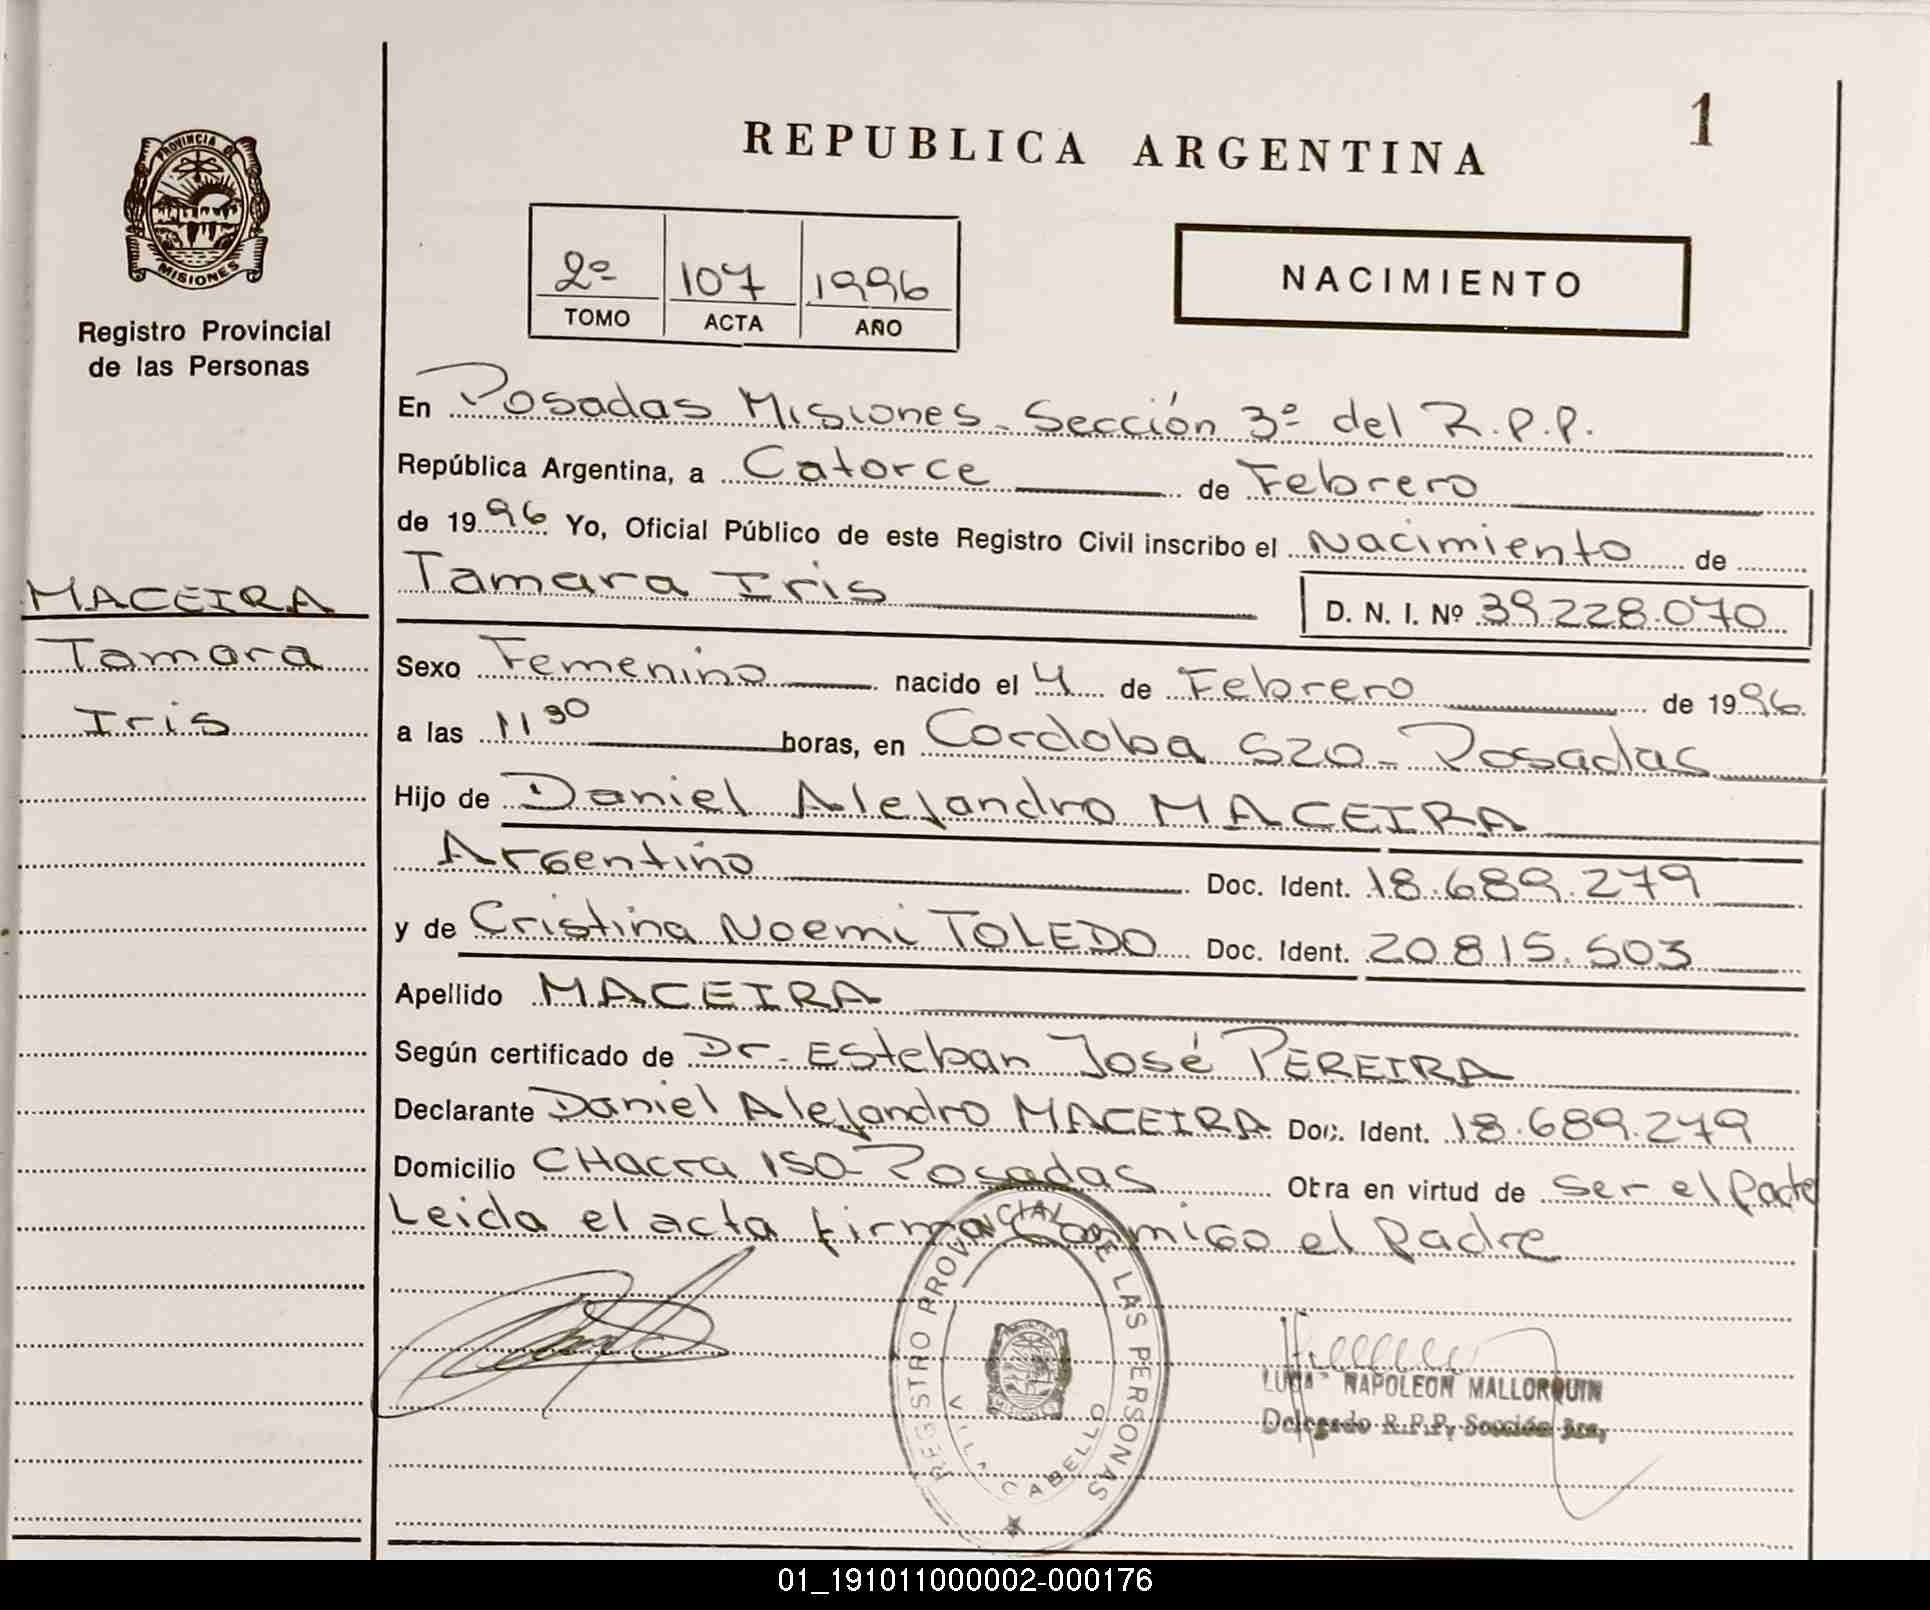 REPUBLICA ARGENTINA
1
PROVINCIA DE
MISIONES
Registro Provincial
de las Personas
2º 107 1996
TOMO ACTA AÑO
NACIMIENTO
En Posadas Misiones - Sección 3º del R.P.P.
República Argentina, a Catorce de Febrero
de 1996 Yo, Oficial Público de este Registro Civil inscribo el Nacimiento de
Tamara Iris D. N. I. Nº 39.228.070
MACEIRA
Tamara
Iris
Sexo Femenino nacido el 4 de Febrero de 1996
a las 11 30 horas, en Cordoba 520 - Posadas
Hijo de Daniel Alejandro MACEIRA
Argentino Doc. Ident. 18.689.279
y de Cristina Noemi TOLEDO Doc. Ident. 20.815.503
Apellido MACEIRA
Según certificado de Dr. Esteban José PEREIRA
Declarante Daniel Alejandro MACEIRA Doc. Ident. 18.689.279
Domicilio CHacra 150 - Posadas Obra en virtud de ser el Padre
Leida el acta firma conmigo el Padre
REGISTRO PROVINCIAL DE LAS PERSONAS
VILLA CABELLO
NAPOLEON MALLORQUIN
Delegado R.P.P. Sección 3ra.
01_191011000002-000176